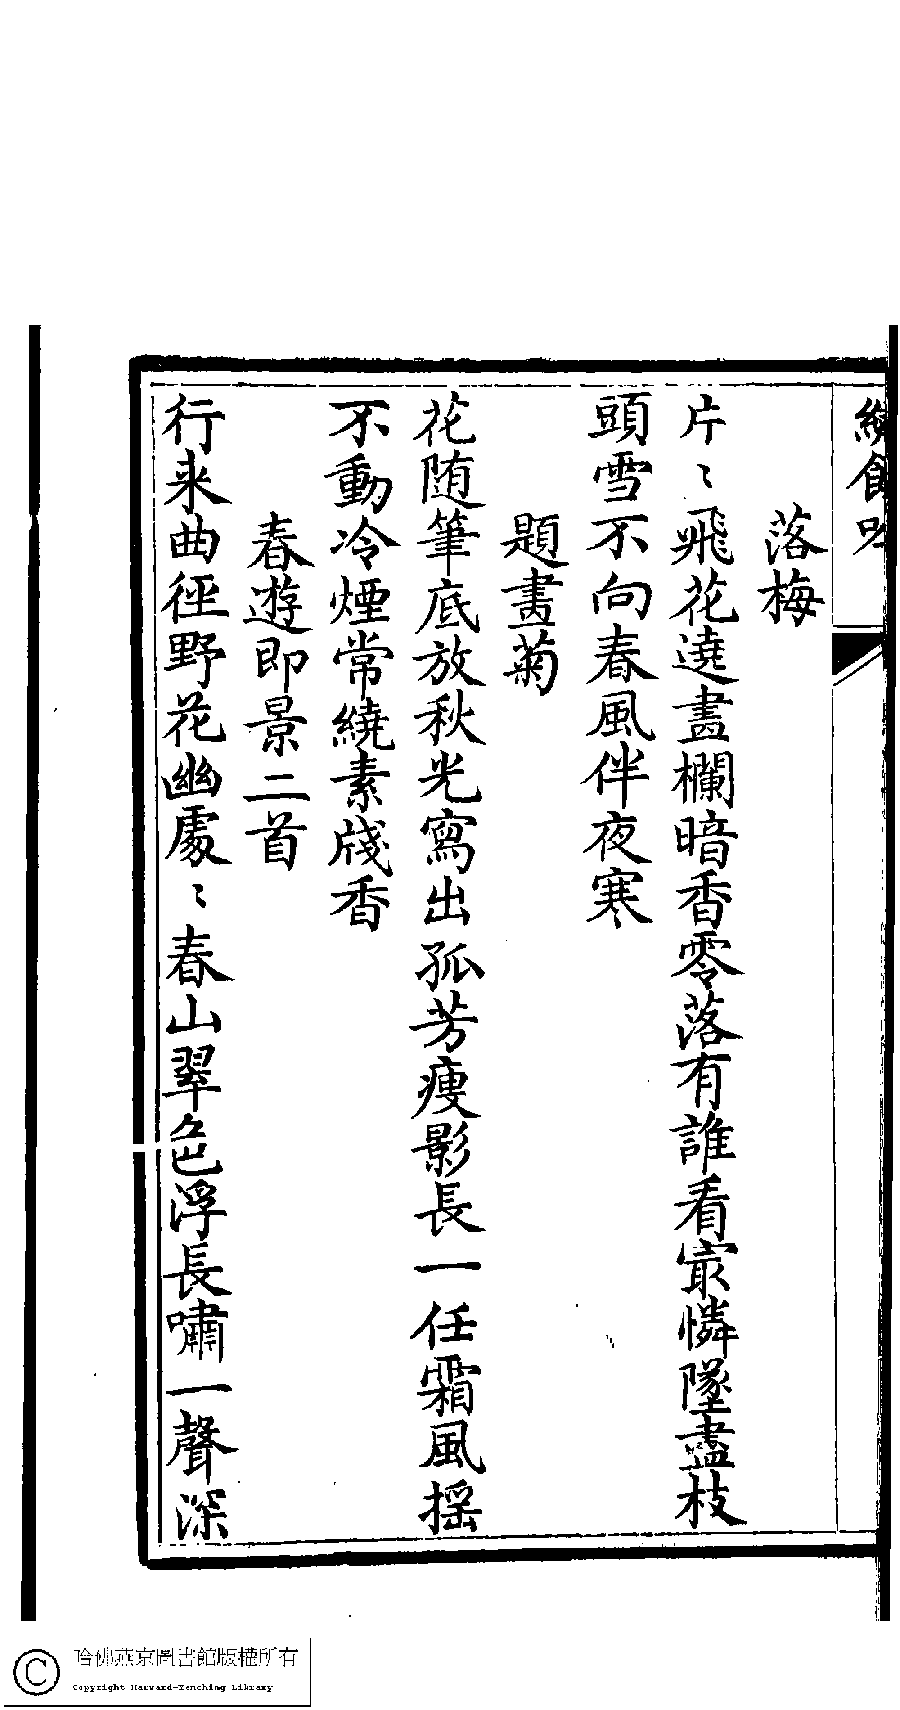 落梅
片〻飛花遶畫欄暗香零落有誰看㝡憐墜盡枝
頭雪不向春風伴夜寒
題畫菊
花随筆底放秋光寫出孤芳瘦影長一任霜風揺
不動冷煙常繞素牋香
春遊即景二首
行来曲徑野花幽處〻春山翠色浮長嘯一聲深
哈佛燕京圖書館版權所有
Copyright Harvard-Yenching Library